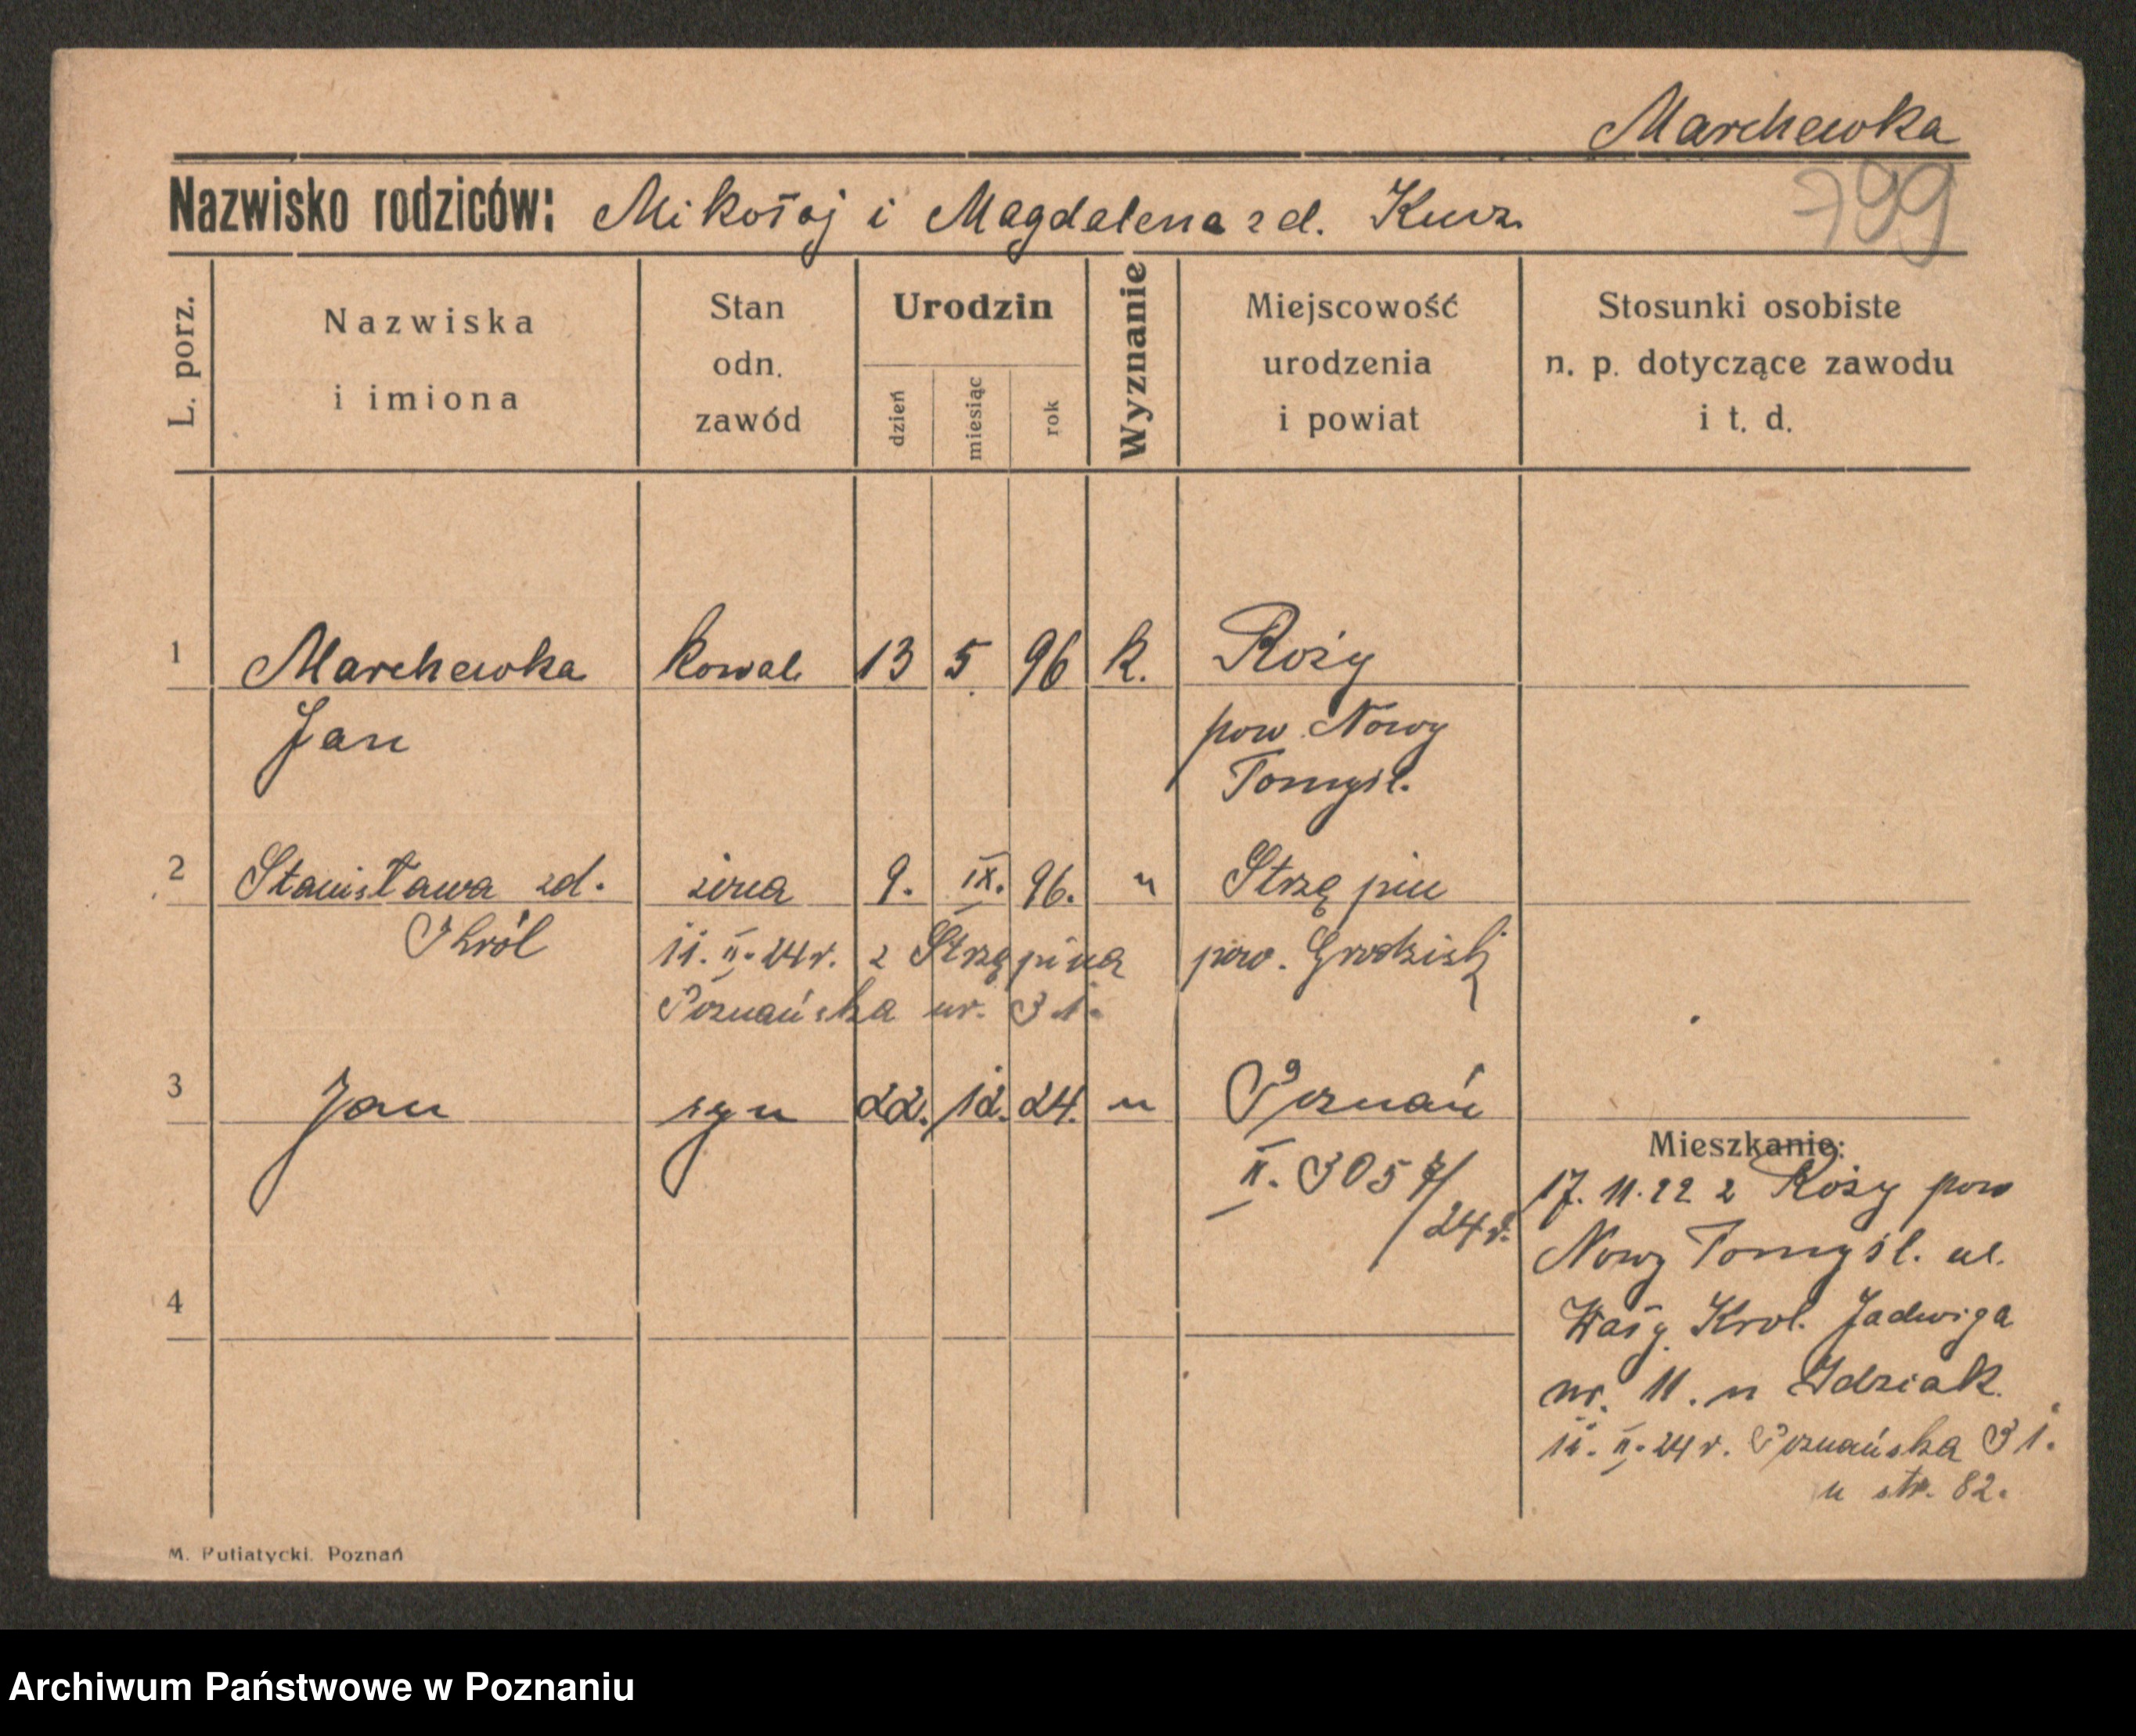 Marchewka
799
Nazwisko rodziców: Mikołaj i Magdalena zd. Kurz.
L. porz.
Nazwiska i imiona
Stan odn. zawód
Urodzin
dzień miesiąc rok
Wyznanie
Miejscowość urodzenia i powiat
Stosunki osobiste n. p. dotyczące zawodu i t. d.
1 Marchewka kowal 13 5 96 k. Roży
Jan pow. Nowy
Tomyśl.
2 Stanisława zd. żona 9. IX. 96. " Strzępin
Król 11. II. 24 r. z Strzępina pow. Grodzisk
Poznańska nr. 31.
3 Jan syn 22. 12. 24. " Poznań
II. 3057/24 r.
4
Mieszkanie:
17. 11. 22 z Roży pow
Nowy Tomyśl. ul.
Wały Krol. Jadwiga
nr. 11. u Idziak.
11. II. 24 r. Poznańska 31.
u str. 82.
M. Putiatycki. Poznań
Archiwum Państwowe w Poznaniu